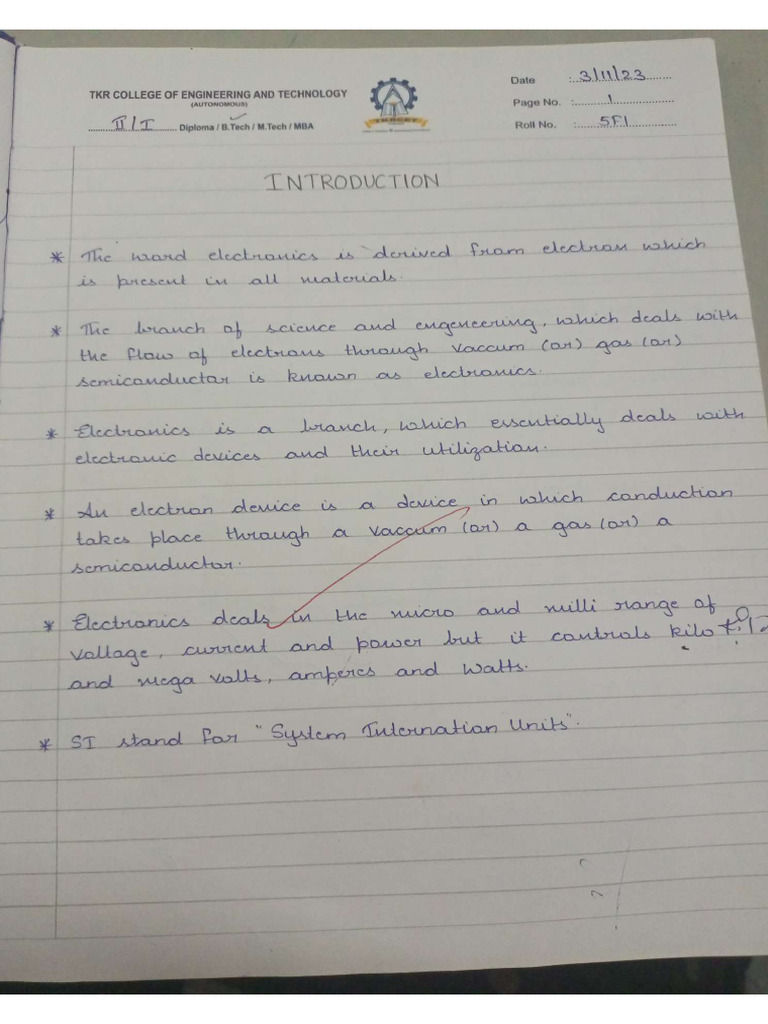 TKR COLLEGE OF ENGINEERING AND TECHNOLOGY
(AUTONOMOUS)
II/I Diploma / B.Tech / M.Tech / MBA
Date : 3/11/23
Page No. : 1
Roll No. : 5F1
INTRODUCTION
* The word electronics is derived from electron which
is present in all materials.
* The branch of science and engeneering, which deals with
the flow of electrons through vaccum (or) gas (or)
semiconductor is known as electronics.
* Electronics is a branch, which essentially deals with
electronic devices and their utilization.
* An electron device is a device in which conduction
takes place through a vaccum (or) a gas (or) a
semiconductor.
* Electronics deals in the micro and milli range of
voltage, current and power but it controls kilo
and mega volts, amperes and watts.
* SI stand for "System Internation Units".